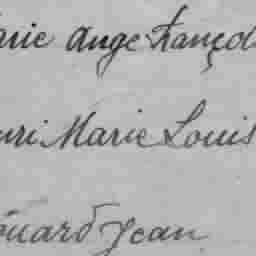 arie Ange françoi
nri Marie Louis
ouard Jean